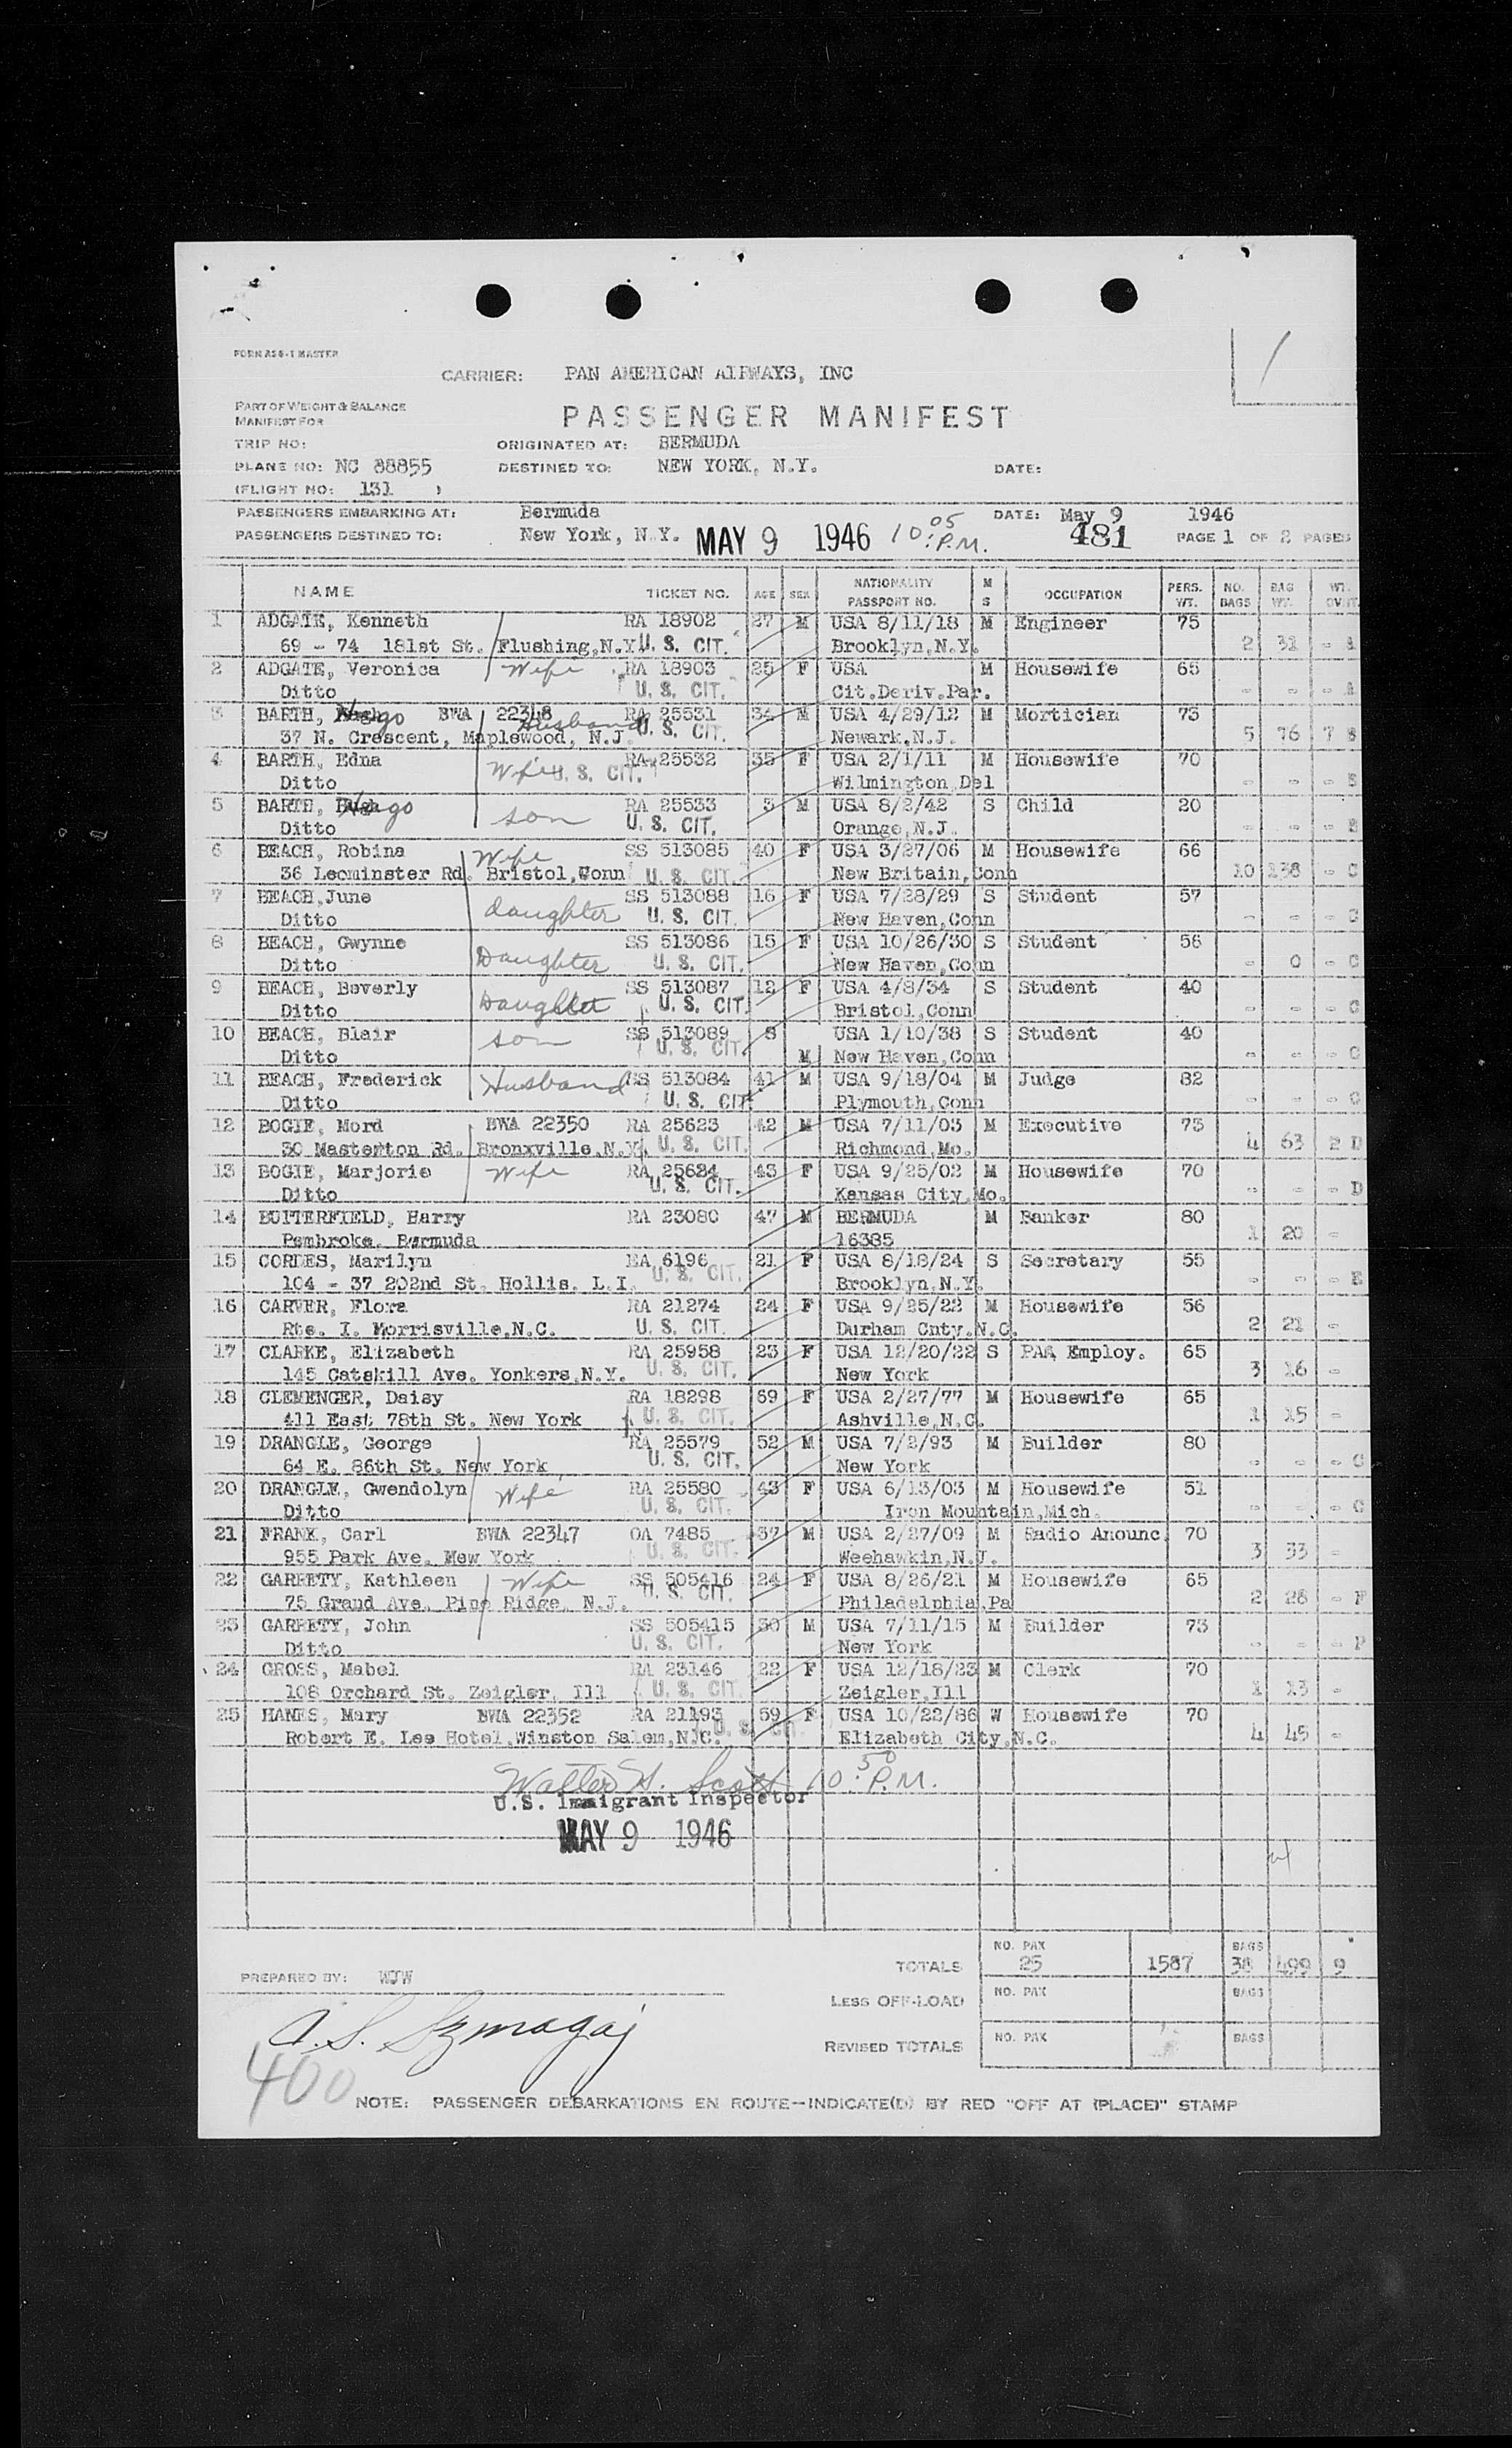 FORM ASB-1 MASTER
CARRIER: PAN AMERICAN AIRWAYS, INC
PART OF WEIGHT & BALANCE
MANIFEST FOR
PASSENGER MANIFEST
TRIP NO: ORIGINATED AT: BERMUDA
PLANE NO: NC 88855 DESTINED TO: NEW YORK, N.Y. DATE:
(FLIGHT NO: 131 )
PASSENGERS EMBARKING AT: Bermuda DATE: May 9 1946
PASSENGERS DESTINED TO: New York, N.Y. MAY 9 1946 10:05 P.M. 481 PAGE 1 OF 2 PAGES
NAME TICKET NO. AGE SEX NATIONALITY PASSPORT NO. M S OCCUPATION PERS. WT. NO. BAGS BAG WT. WT. OV.IT.
1 ADGATE, Kenneth RA 18902 27 M USA 8/11/18 M Engineer 75
69 - 74 181st St. Flushing,N.Y. U. S. CIT. Brooklyn,N.Y. 2 31 - A
2 ADGATE, Veronica Wife RA 18903 25 F USA M Housewife 65
Ditto U. S. CIT. Cit.Deriv.Par. - - - A
3 BARTH, Hugo BWA 22348 Husband RA 25531 34 M USA 4/29/12 M Mortician 73
37 N. Crescent, Maplewood, N.J. U. S. CIT. Newark,N.J. 5 76 7 B
4 BARTH, Edna Wife RA 25532 35 F USA 2/1/11 M Housewife 70
Ditto U. S. CIT. Wilmington,Del - - - B
5 BARTH, Hugo son RA 25533 3 M USA 8/2/42 S Child 20
Ditto U. S. CIT. Orange,N.J. - - - B
6 BEACH, Robina Wife SS 513085 40 F USA 3/27/06 M Housewife 66
36 Leominster Rd. Bristol,Conn U. S. CIT. New Britain,Conn 10 138 - C
7 BEACH,June daughter SS 513088 16 F USA 7/28/29 S Student 57
Ditto U. S. CIT. New Haven,Conn - - - C
8 BEACH, Gwynne Daughter SS 513086 15 F USA 10/26/30 S Student 56
Ditto U. S. CIT. New Haven,Conn - 0 - C
9 BEACH, Beverly Daughter SS 513087 12 F USA 4/8/34 S Student 40
Ditto U. S. CIT. Bristol,Conn - - - C
10 BEACH, Blair son SS 513089 8 USA 1/10/38 S Student 40
Ditto U. S. CIT. M New Haven,Conn - - - C
11 BEACH, Frederick Husband SS 513084 41 M USA 9/18/04 M Judge 82
Ditto U. S. CIT. Plymouth,Conn - - - C
12 BOGIE, Mord BWA 22350 RA 25623 42 M USA 7/11/03 M Executive 73
30 Masterton Rd. Bronxville,N.Y. U. S. CIT. Richmond,Mo. 4 63 2 D
13 BOGIE, Marjorie Wife RA 25624 43 F USA 9/25/02 M Housewife 70
Ditto U. S. CIT. Kansas City,Mo. - - - D
14 BUTTERFIELD, Harry RA 23080 47 M BERMUDA M Banker 80
Pembroke, Bermuda 16385 1 20 -
15 CORDES, Marilyn RA 6196 21 F USA 8/18/24 S Secretary 55
104 - 37 202nd St. Hollis, L.I. U. S. CIT. Brooklyn,N.Y. - - - E
16 CARVER, Flora RA 21274 24 F USA 9/25/22 M Housewife 56
Rte. I. Morrisville,N.C. U. S. CIT. Durham Cnty.N.C. 2 21 -
17 CLARKE, Elizabeth RA 25958 23 F USA 12/20/22 S PAA Employ. 65
145 Catskill Ave. Yonkers,N.Y. U. S. CIT. New York 3 16 -
18 CLEMENGER, Daisy RA 18298 69 F USA 2/27/77 M Housewife 65
411 East 78th St. New York U. S. CIT. Ashville,N.C. 1 15 -
19 DRANGLE, George RA 25579 52 M USA 7/2/93 M Builder 80
64 E. 86th St. New York U. S. CIT. New York - - - C
20 DRANGLE, Gwendolyn Wife RA 25580 43 F USA 6/13/03 M Housewife 51
Ditto U. S. CIT. Iron Mountain,Mich. - - - C
21 FRANK, Carl BWA 22347 OA 7485 37 M USA 2/27/09 M Radio Anounc. 70
955 Park Ave. New York U. S. CIT. Weehawkin,N.J. 3 33 -
22 GARRETY, Kathleen Wife SS 505416 24 F USA 8/26/21 M Housewife 65
75 Grand Ave. Pine Ridge, N.J. U. S. CIT. Philadelphia,Pa 2 28 - F
23 GARRETY, John SS 505415 30 M USA 7/11/15 M Builder 73
Ditto U. S. CIT. New York - - - F
24 GROSS, Mabel RA 23146 22 F USA 12/18/23 M Clerk 70
108 Orchard St. Zeigler, Ill U. S. CIT. Zeigler,Ill 1 13 -
25 HANES, Mary BWA 22352 RA 21193 59 F USA 10/22/86 W Housewife 70
Robert E. Lee Hotel,Winston Salem,N.C. U. S. CIT. Elizabeth City,N.C. 4 45 -
Walter H. Scott 10:50 P.M.
U.S. Immigrant Inspector
MAY 9 1946
TOTALS NO. PAX 25 1587 BAGS 38 499 9
PREPARED BY: WJW
LESS OFF-LOAD NO. PAX BAGS
A. S. Szmagaj
REVISED TOTALS NO. PAX BAGS
400
NOTE: PASSENGER DEBARKATIONS EN ROUTE—INDICATE(D) BY RED "OFF AT (PLACE)" STAMP